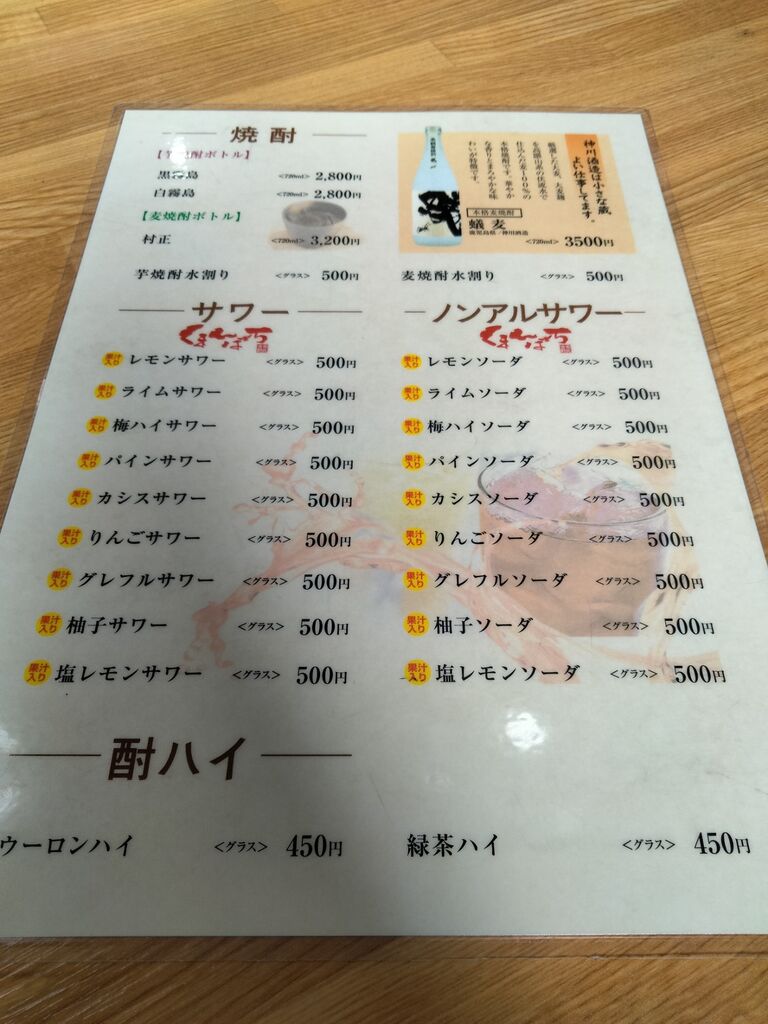 焼酎
【芋焼酎ボトル】
黒霧島 <720ml> 2,800円
白霧島 <720ml> 2,800円
【麦焼酎ボトル】
村正 <720ml> 3,200円
芋焼酎水割り <グラス> 500円
神川酒造は小さな蔵。
よい仕事してます。
厳選した大麦、大麦麹
を高隈山系の伏流水で
仕込んだ麦100%の
本格焼酎です。華やか
な香りとまろやかな味
わいが特徴です。
本格麦焼酎
蟻麦
鹿児島県/神川酒造
<720ml> 3500円
麦焼酎水割り <グラス> 500円
サワー
果汁入り レモンサワー <グラス> 500円
果汁入り ライムサワー <グラス> 500円
果汁入り 梅ハイサワー <グラス> 500円
果汁入り パインサワー <グラス> 500円
果汁入り カシスサワー <グラス> 500円
果汁入り りんごサワー <グラス> 500円
果汁入り グレフルサワー <グラス> 500円
果汁入り 柚子サワー <グラス> 500円
果汁入り 塩レモンサワー <グラス> 500円
ノンアルサワー
果汁入り レモンソーダ <グラス> 500円
果汁入り ライムソーダ <グラス> 500円
果汁入り 梅ハイソーダ <グラス> 500円
果汁入り パインソーダ <グラス> 500円
果汁入り カシスソーダ <グラス> 500円
果汁入り りんごソーダ <グラス> 500円
果汁入り グレフルソーダ <グラス> 500円
果汁入り 柚子ソーダ <グラス> 500円
果汁入り 塩レモンソーダ <グラス> 500円
酎ハイ
ウーロンハイ <グラス> 450円
緑茶ハイ <グラス> 450円